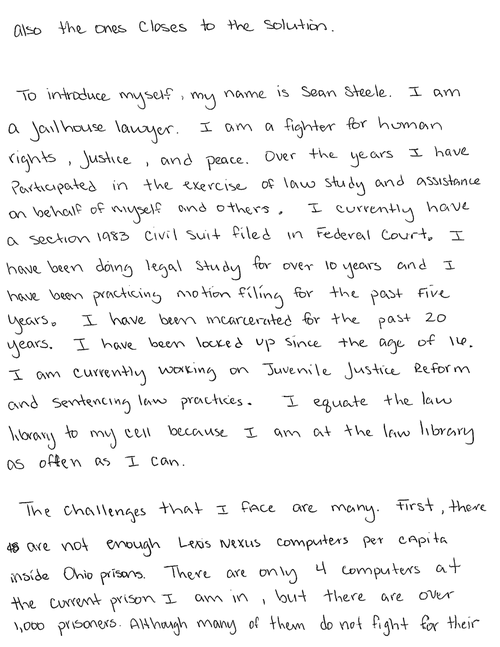 also the ones closes to the solution.
To introduce myself, my name is Sean Steele. I am
a Jailhouse lawyer. I am a fighter for human
rights, Justice, and peace. Over the years I have
Participated in the exercise of law study and assistance
on behalf of myself and others. I currently have
a section 1983 civil suit filed in Federal Court. I
have been doing legal study for over 10 years and I
have been practicing motion filing for the past Five
years. I have been incarcerated for the past 20
years. I have been locked up since the age of 16.
I am currently working on Juvenile Justice Reform
and sentencing law practices. I equate the law
library to my cell because I am at the law library
as often as I can.
The challenges that I face are many. First, there
are not enough Lexis Nexus computers per capita
inside Ohio prisons. There are only 4 computers at
the current prison I am in, but there are over
1,000 prisoners. Although many of them do not fight for their